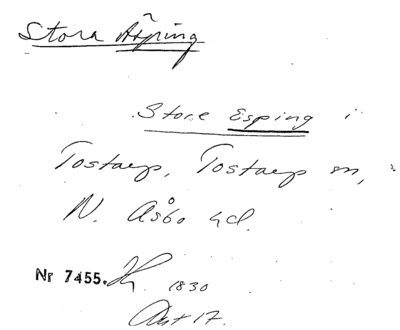 Stora Äsping
Store Esping i
Tostarp, Tostarp sn,
N. Åsbo hd.
Nr 7455. 1830
Akt 17.